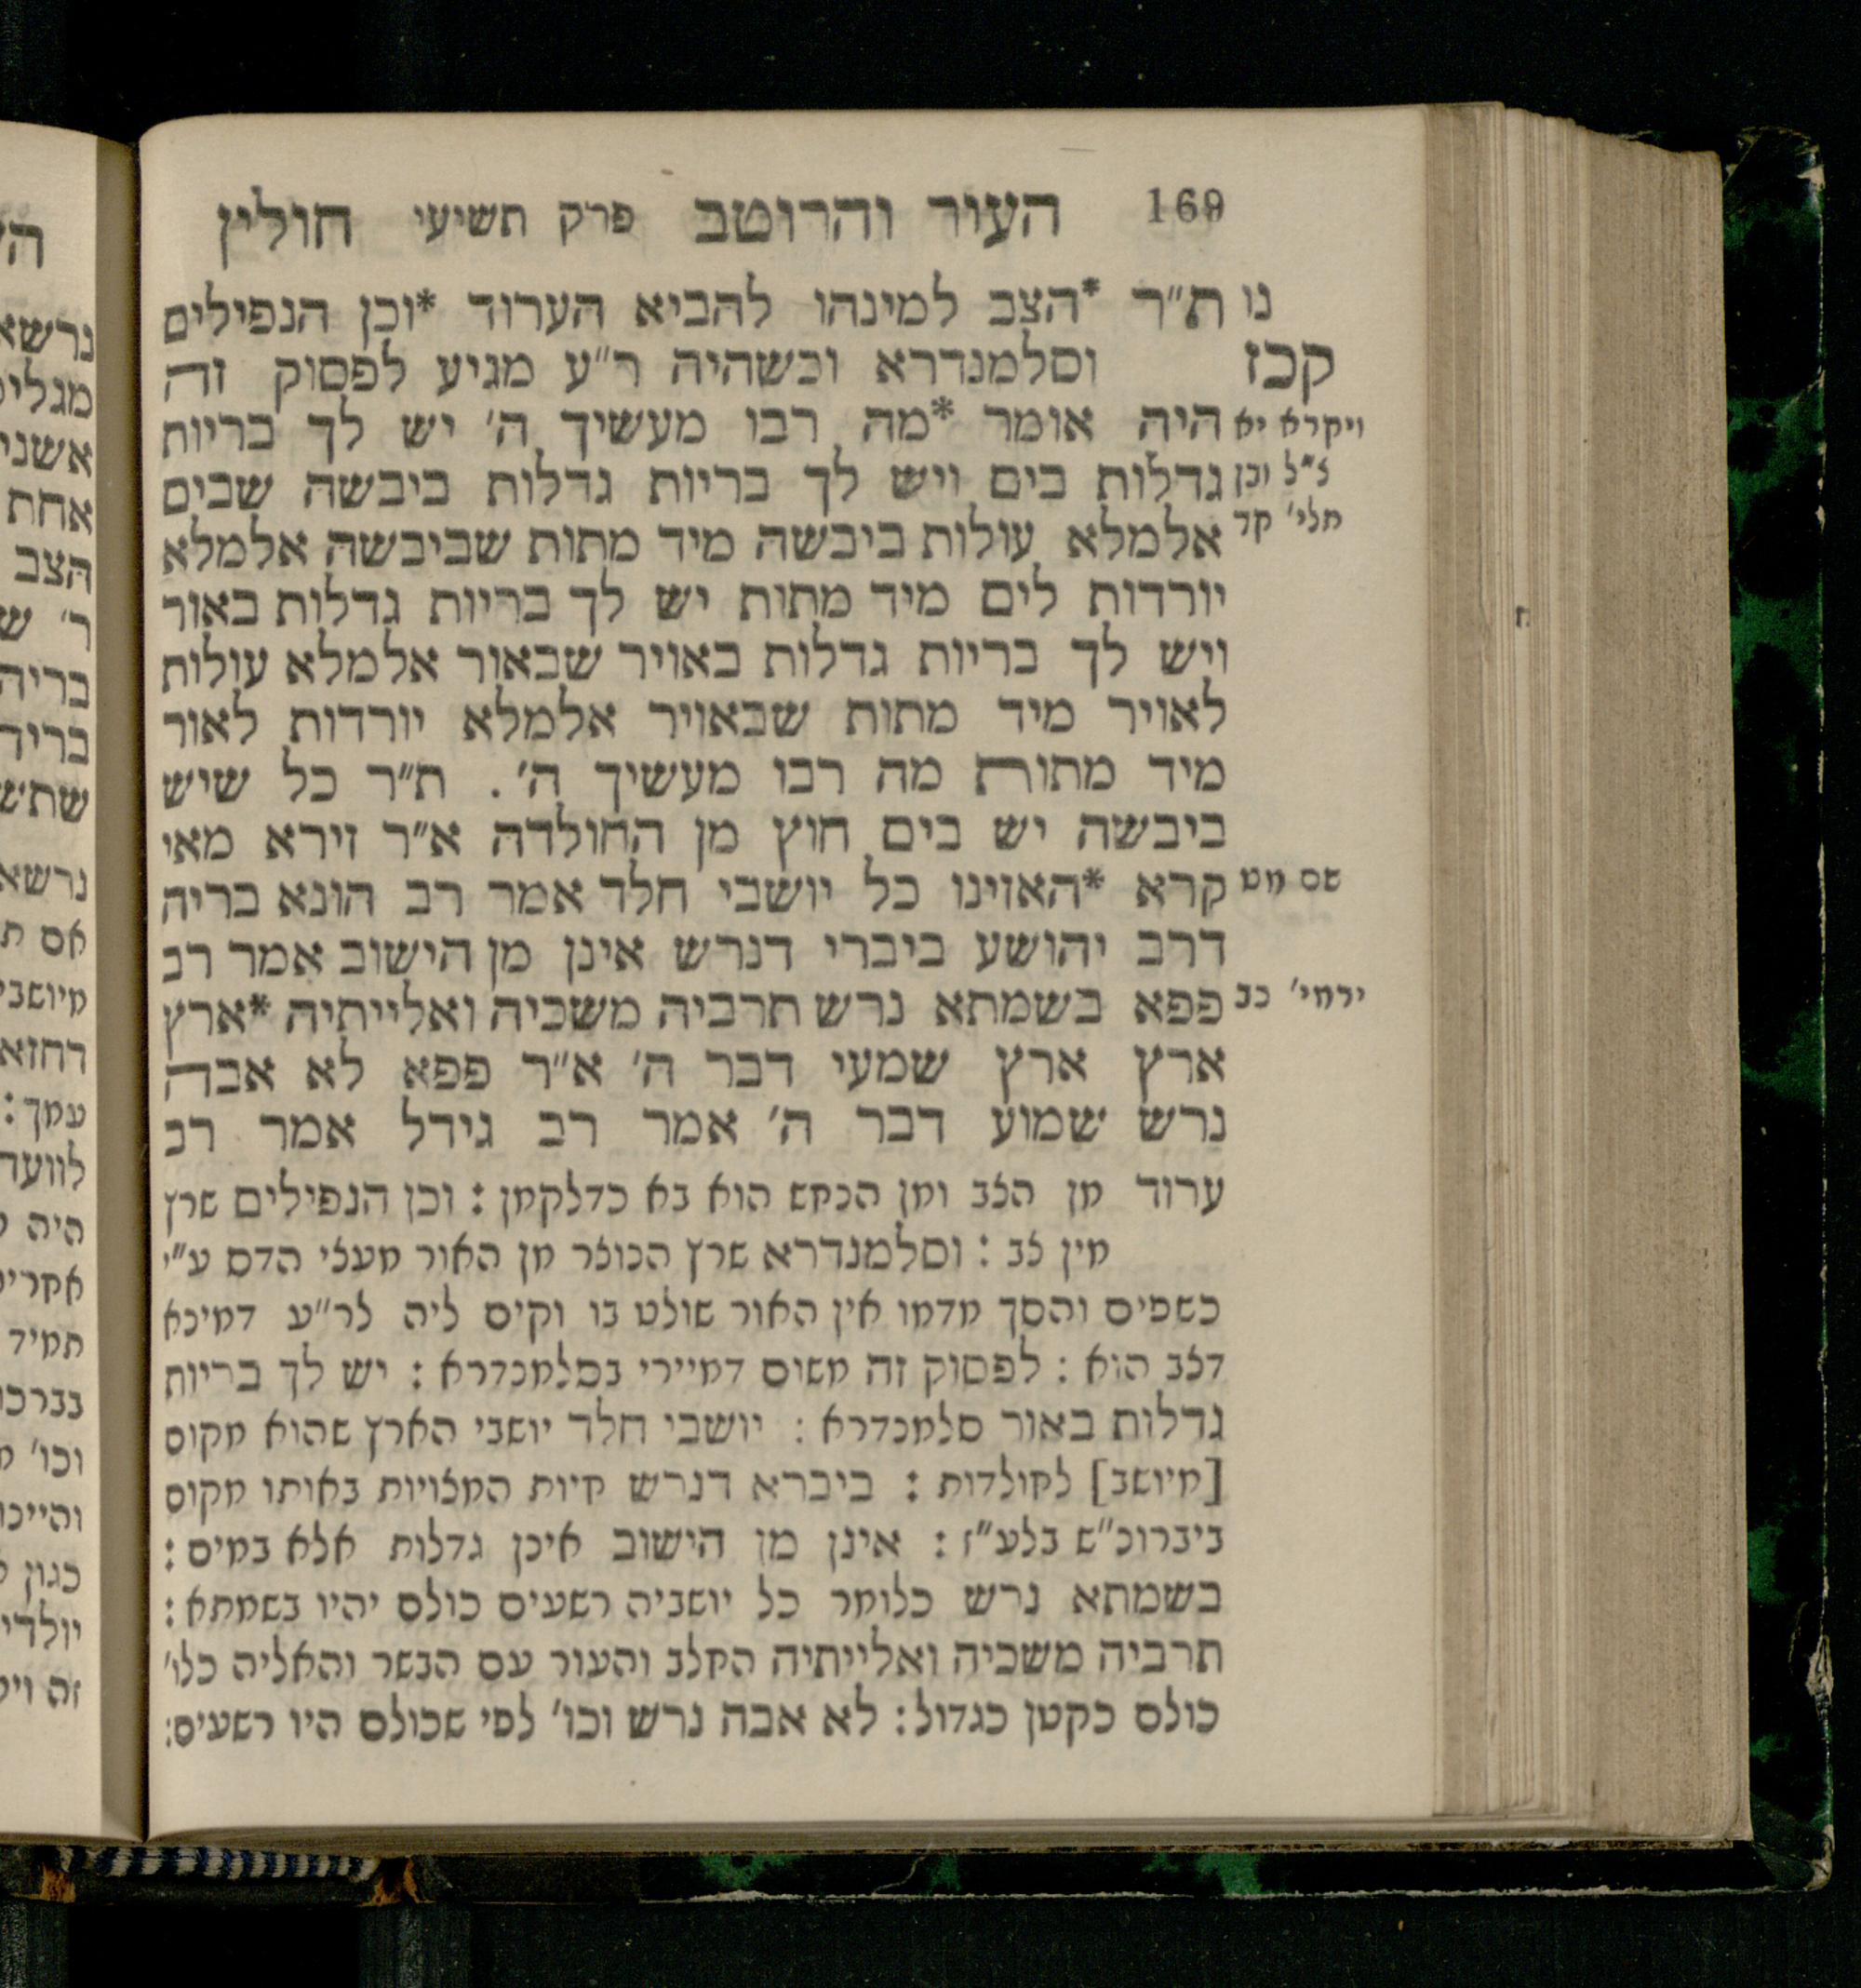 169 העור והרוטב פרק תשיעי חולין
נו ת״ר *הצב למינהו להביא הערוד *וכן הנפילים
קכז וסלמנדרא וכשהיה ר״ע מגיע לפסוק זה
ויקרא יא היה אומר *מה רבו מעשיך ה׳ יש לך בריות
צ״ל וכן גדלות בים ויש לך בריות גדלות ביבשה שבים
תלי׳ קד אלמלא עולות ביבשה מיד מתות שביבשה אלמלא
יורדות לים מיד מתות יש לך בריות גדלות באור
ויש לך בריות גדלות באויר שבאור אלמלא עולות
לאויר מיד מתות שבאויר אלמלא יורדות לאור
מיד מתות מה רבו מעשיך ה׳. ת״ר כל שיש
ביבשה יש בים חוץ מן החולדה א״ר זירא מאי
שם מט קרא *האזינו כל יושבי חלד אמר רב הונא בריה
דרב יהושע ביברי דנרש אינן מן הישוב אמר רב
ירמי׳ כב פפא בשמתא נרש תרביה משכיה ואלייתיה *ארץ
ארץ ארץ שמעי דבר ה׳ א״ר פפא לא אבה
נרש שמוע דבר ה׳ אמר רב גידל אמר רב
ערוד מן הצב ומן הנחש הוא בא כדלקמן: וכן הנפילים שרץ
מין צב: וסלמנדרא שרץ הנוצר מן האור מעצי הדס ע״י
כשפים והסך מדמו אין האור שולט בו וקים ליה לר״ע דמינא
דצב הוא: לפסוק זה משום דמיירי בסלמנדרא: יש לך בריות
גדלות באור סלמנדרא: יושבי חלד יושבי הארץ שהוא מקום
[מיושב] לחולדות: ביברא דנרש חיות המצויות באותו מקום
ביברונ״ש בלע״ז: אינן מן הישוב אינן גדלות אלא במים:
בשמתא נרש כלומר כל יושביה רשעים כולם יהיו בשמתא:
תרביה משכיה ואלייתיה החלב והעור עם הבשר והאליה כלו׳
כולם כקטן כגדול: לא אבה נרש וכו׳ לפי שכולם היו רשעים: